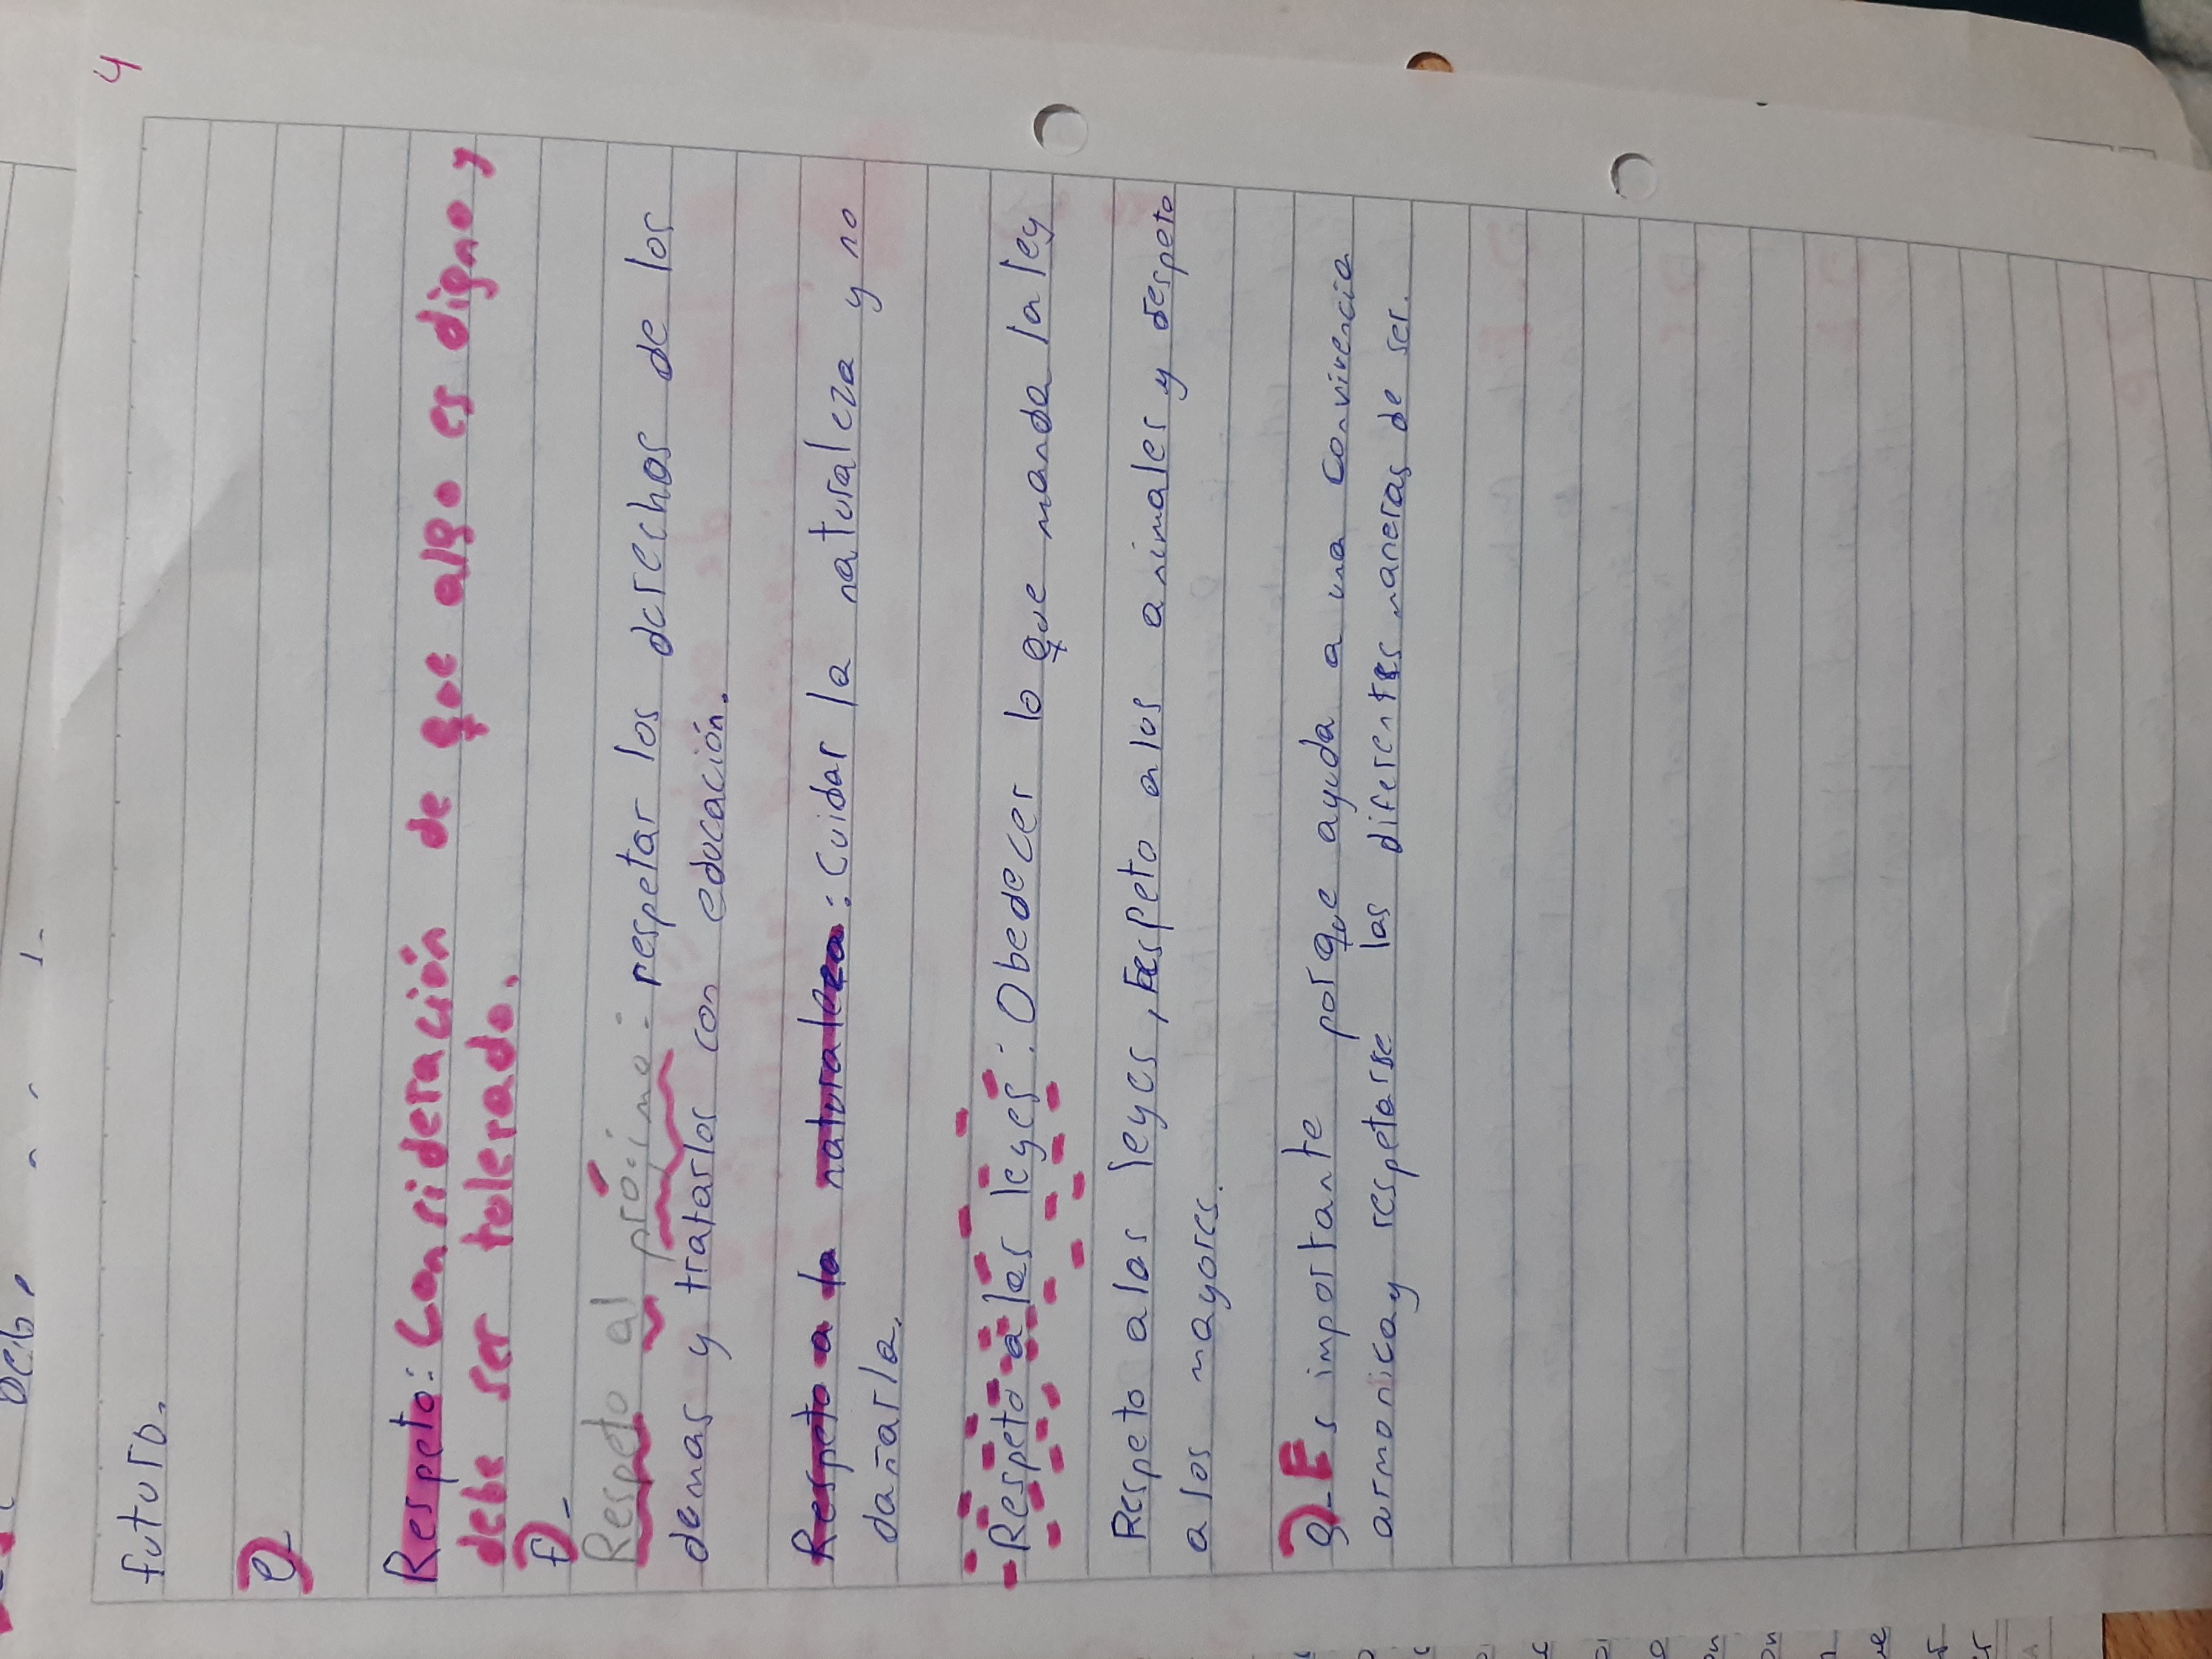 4
futuro.
e)
Respeto: Consideración de que algo es digno y
debe ser tolerado.
f)-
Respeto al próximo: respetar los derechos de los
demas y tratarlos con educación.
Respeto a la naturaleza: Cuidar la naturaleza y no
dañarla.
Respeto a las leyes: Obedecer lo que manda la ley
Respeto a las leyes, respeto a los animales y respeto
a los mayores.
g)-Es importante porque ayuda a una convivencia
armonica y respetarse las diferentes maneras de ser.